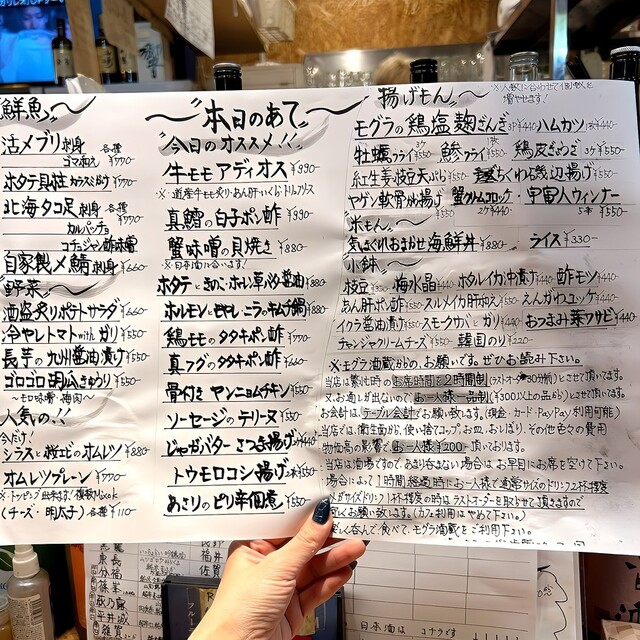 鮮魚
活〆ブリ刺身 各種
ゴマ和え ¥770
ホタテ貝柱 ¥770
北海タコ足 刺身 各種
カルパッチョ ¥770
コチュジャン酢味噌
自家製〆鯖刺身 ¥660
野菜
酒盗炙りポテトサラダ ¥660
冷やしトマトwithガリ ¥550
長芋の九州醤油漬け ¥550
ゴロゴロ胡瓜きゅうり ¥550
~モロ味噌・梅肉~
人気の!!
今だけ!
シラスと桜エビのオムレツ ¥880
オムレツプレーン ¥770
※トッピング出来ます!複数Mixok
(チーズ・明太子) 各種 ¥110
本日のあて
今日のオススメ!!
牛モモ アディオス ¥990
真鱈の白子ポン酢 ¥990
蟹味噌の貝焼き ¥880
※日本酒に合います!
ホタテときのこ ホイル バター醤油 ¥880
ホルモン・もやし・ニラのキムチ鍋 ¥880
鶏モモのタタキポン酢 ¥770
真フグのタタキポン酢 ¥660
骨付きヤンニョムチキン ¥550
ソーセージのテリーヌ ¥550
じゃがバターさつま揚げ ¥440
トウモロコシ揚げ ¥550
あさりのピリ辛佃煮 ¥550
揚げもん
※人数に合わせて個数を
増やせます!
モグラの鶏塩麹ざんぎ 3P ¥440 ハムカツ ¥440
牡蠣フライ ¥550 鯵フライ ¥550 鶏皮ぎょうざ ¥550
紅生姜・枝豆天ぷら ¥550 ちくわ磯辺揚げ ¥550
ヤゲン軟骨唐揚げ ¥550 蟹クリームコロッケ 2ケ ¥440 宇宙人ウィンナー 5本 ¥550
米もん
気まぐれおまかせ海鮮丼 ¥880 ライス ¥330
小鉢
枝豆 ¥330 梅水晶 ¥440 ホタルイカ沖漬け ¥440 酢モツ ¥440
あん肝ポン酢 ¥550 スルメイカ肝和え ¥550 えんがわユッケ ¥440
イクラ醤油漬け ¥550 スモークサバとガリ ¥440 おつまみ葉ワサビ ¥440
チャンジャクリームチーズ ¥550 韓国のり ¥220
※モグラ酒蔵からの、お願いです。ぜひお読み下さい。
当店は繁忙時のお席時間を2時間制(ラストオーダー30分前)とさせて頂いてます。
又、お通しが出ないので お一人様一品制(¥300以上の品から)とさせて頂きます。
お会計は、テーブル会計でお願い致します。(現金・カード・PayPay利用可能)
当店では、衛生面から、使い捨てコップ、お皿、おしぼり、その他色々の費用
物価高の影響で お一人様¥200- 頂いております。
当店は酒場ですので、あまり呑まない場合は お早目にお席を空けて下さい。
場合によって1時間経過時にお一人様で通常サイズのドリンク2杯程度
メガサイズドリンク1杯程度の時はラストオーダーを取らせて頂きますので
宜しくお願い致します。(カフェ利用はやめて下さい。)
楽しく呑んで、食べて、モグラ酒蔵をご利用下さい。
福井
佐賀